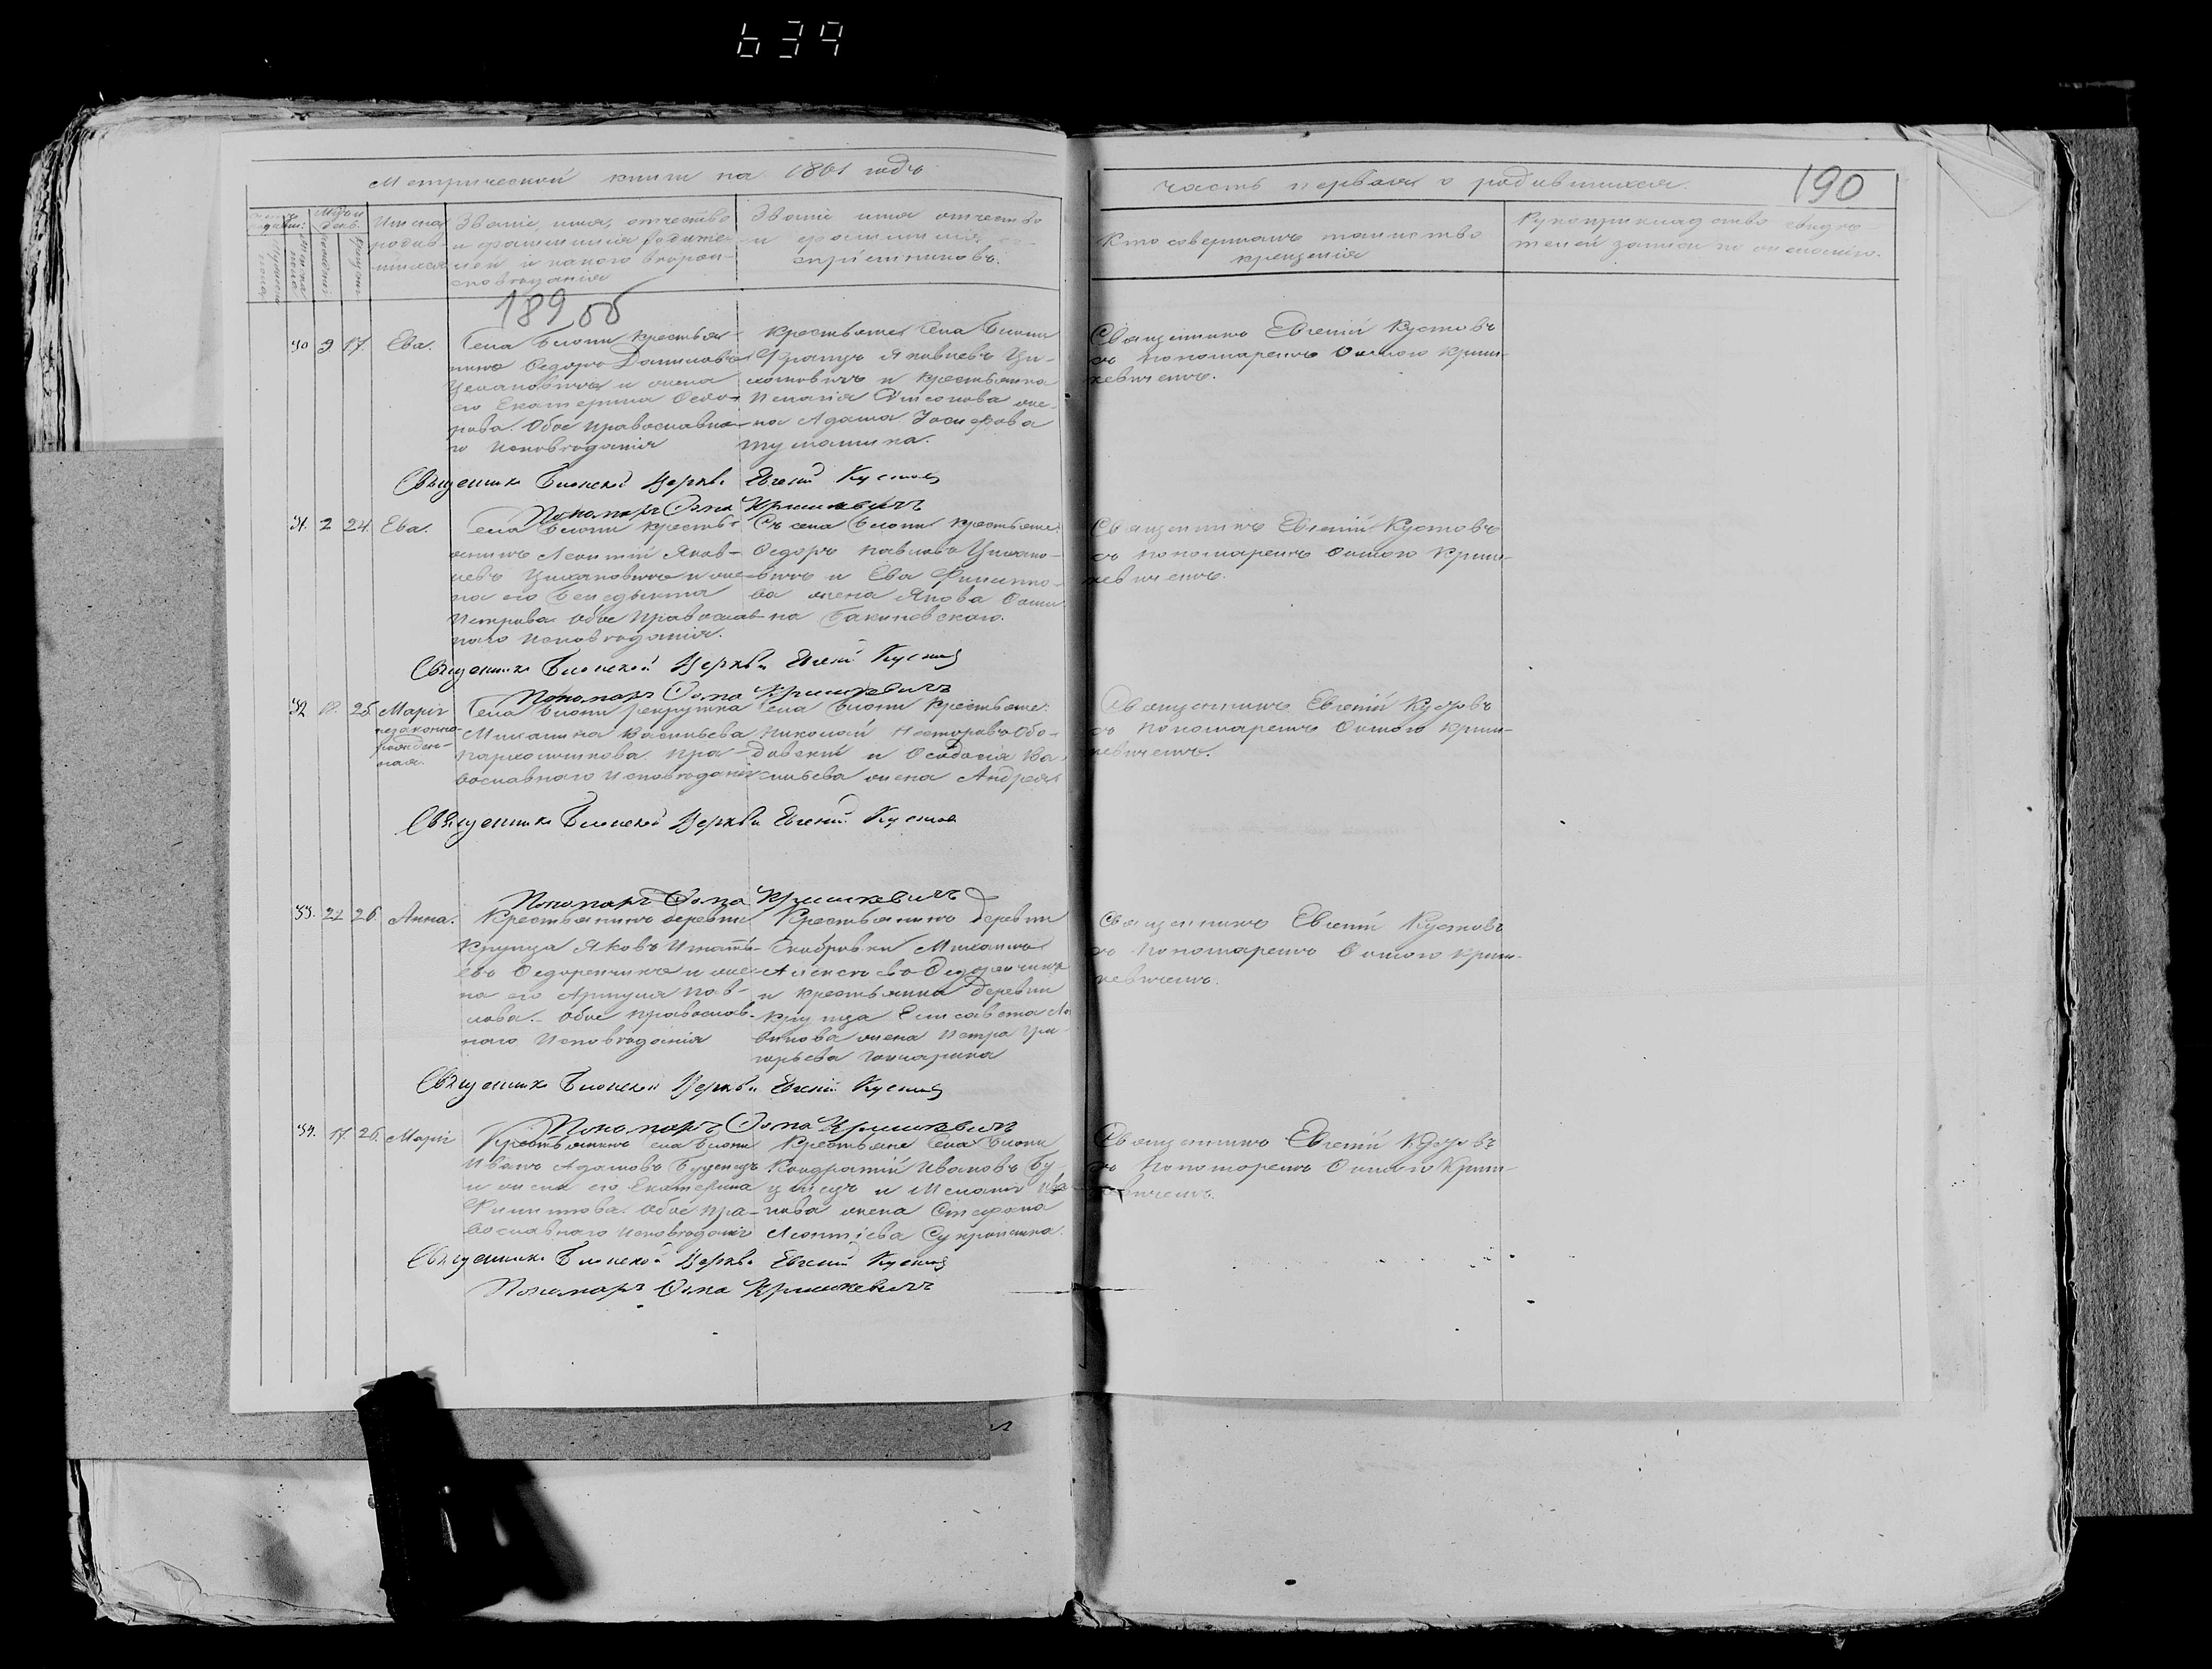 639
Метрической книги на 1861 годъ
часть первая о родившихся.
190
Имена родив-шихся
Званіе, имя, отчество и фамилія родите-лей и какого вѣроис-повѣданія
Званіе имя отчество и фамилія воспріемниковъ.
Кто совершалъ таинство крещенія
Рукоприкладство свидѣ-телей записи по желанію.
189 об
30 9 17. Ева.
Села Блони крестья-
нинъ Ѳедоръ Даниловъ
Цехановичъ и жена
его Екатерина Ѳедо-
рова. Обое православна-
го исповѣданія
Крестьяне села Блони
Францъ Яковлевъ Ци-
хановичъ и крестьянка
Пелагія Аѳисонова же-
на Адама Іосифова
Тумашика.
Священникъ Евгеній Кустовъ
съ пономаремъ Ѳомою Криш-
кевичемъ.
Священникъ Блонской Церкви Евгеній Кустовъ
Пономарь Ѳома Кришкевичъ
31. 2 24. Ева.
Села Блони кресть-
янинъ Леонтій Яков-
левъ Цихановичъ и же-
на его Бенедыкта
Петрова Обое православ-
наго исповѣданія.
Съ села Блони крестьяне:
Ѳедоръ Павловъ Цихано-
вичъ и Ева Филиппо-
ва жена Якова Ѳоми-
на Бакиновскаго.
Священникъ Евгеній Кустовъ
съ пономаремъ Ѳомою Криш-
кевичемъ.
Священникъ Блонской Церкви Евгеній Кустовъ
Пономарь Ѳома Кришкевичъ
32 18. 25 Марія
незаконно-
рожден-
ная.
Села Блони рекрутка
Михалина Васильева
Пархомчикова. пра-
вославнаго исповѣданія
Села Блони крестьяне:
Николай Несторовъ Обо-
довскій и Ѳеодосія Ва-
сильева жена Андрея
Священникъ Евгеній Кустовъ
съ пономаремъ Ѳомою Криш-
кевичемъ.
Священникъ Блонской Церкви Евгеній Кустовъ
Пономарь Ѳома Кришкевичъ
33. 22 26. Анна.
Крестьянинъ деревни
Крупца Яковъ Игнать-
евъ Ѳедоренчикъ и же-
на его Аршуля Пав-
лова. Обое православ-
наго исповѣданія
Крестьянинъ деревни
Скобровки Михаилъ
Алексѣевъ Ѳедоренчикъ
и крестьянка деревни
Крупца Елисавета Ло-
гинова жена Петра Гри-
горьева Гончарика
Священникъ Евгеній Кустовъ
съ пономаремъ Ѳомою Криш-
кевичемъ.
Священникъ Блонской Церкви Евгеній Кустовъ
Пономарь Ѳома Кришкевичъ
34. 17. 26. Марія
Крестьянинъ села Блони
Иванъ Адамовъ Буцецъ
и жена его Екатерина
Филиппова. Обое пра-
вославнаго исповѣданія
Крестьяне села Блони
Кондратій Ивановъ Бу-
цецъ и Меланія Ива-
нова жена Стефана
Леонтіева Сукронника.
Священникъ Евгеній Кустовъ
съ пономаремъ Ѳомою Криш-
кевичемъ.
Священникъ Блонской Церкви Евгеній Кустовъ
Пономарь Ѳома Кришкевичъ